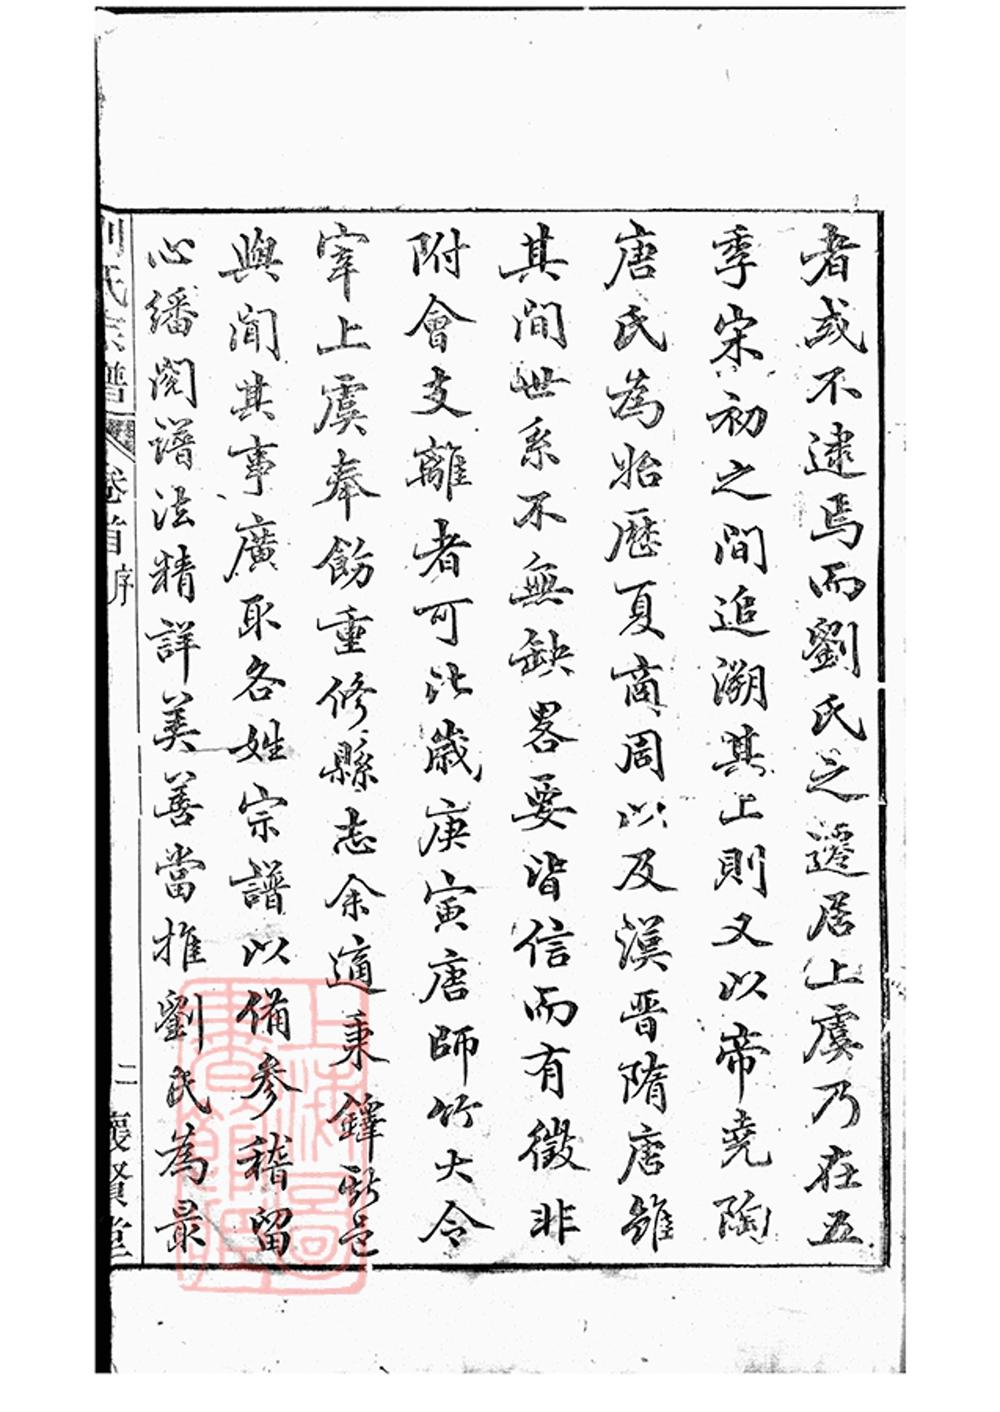 者或不逮焉而劉氏之遷居上虞乃在五
季宋初之間追溯其上則又以帝堯陶
唐氏為始歷夏商周以及漢晋隋唐雖
其間世系不無缺畧要皆信而有徵非
附會支離者可比歲庚寅唐師竹大令
宰上虞奉飭重修縣志余適秉鐸斯邑
與聞其事廣取各姓宗譜以備參稽留
心繙閱譜法精詳美善當推劉氏為最
劉氏宗譜 卷首 序 二 懷賢堂
上海圖書館藏